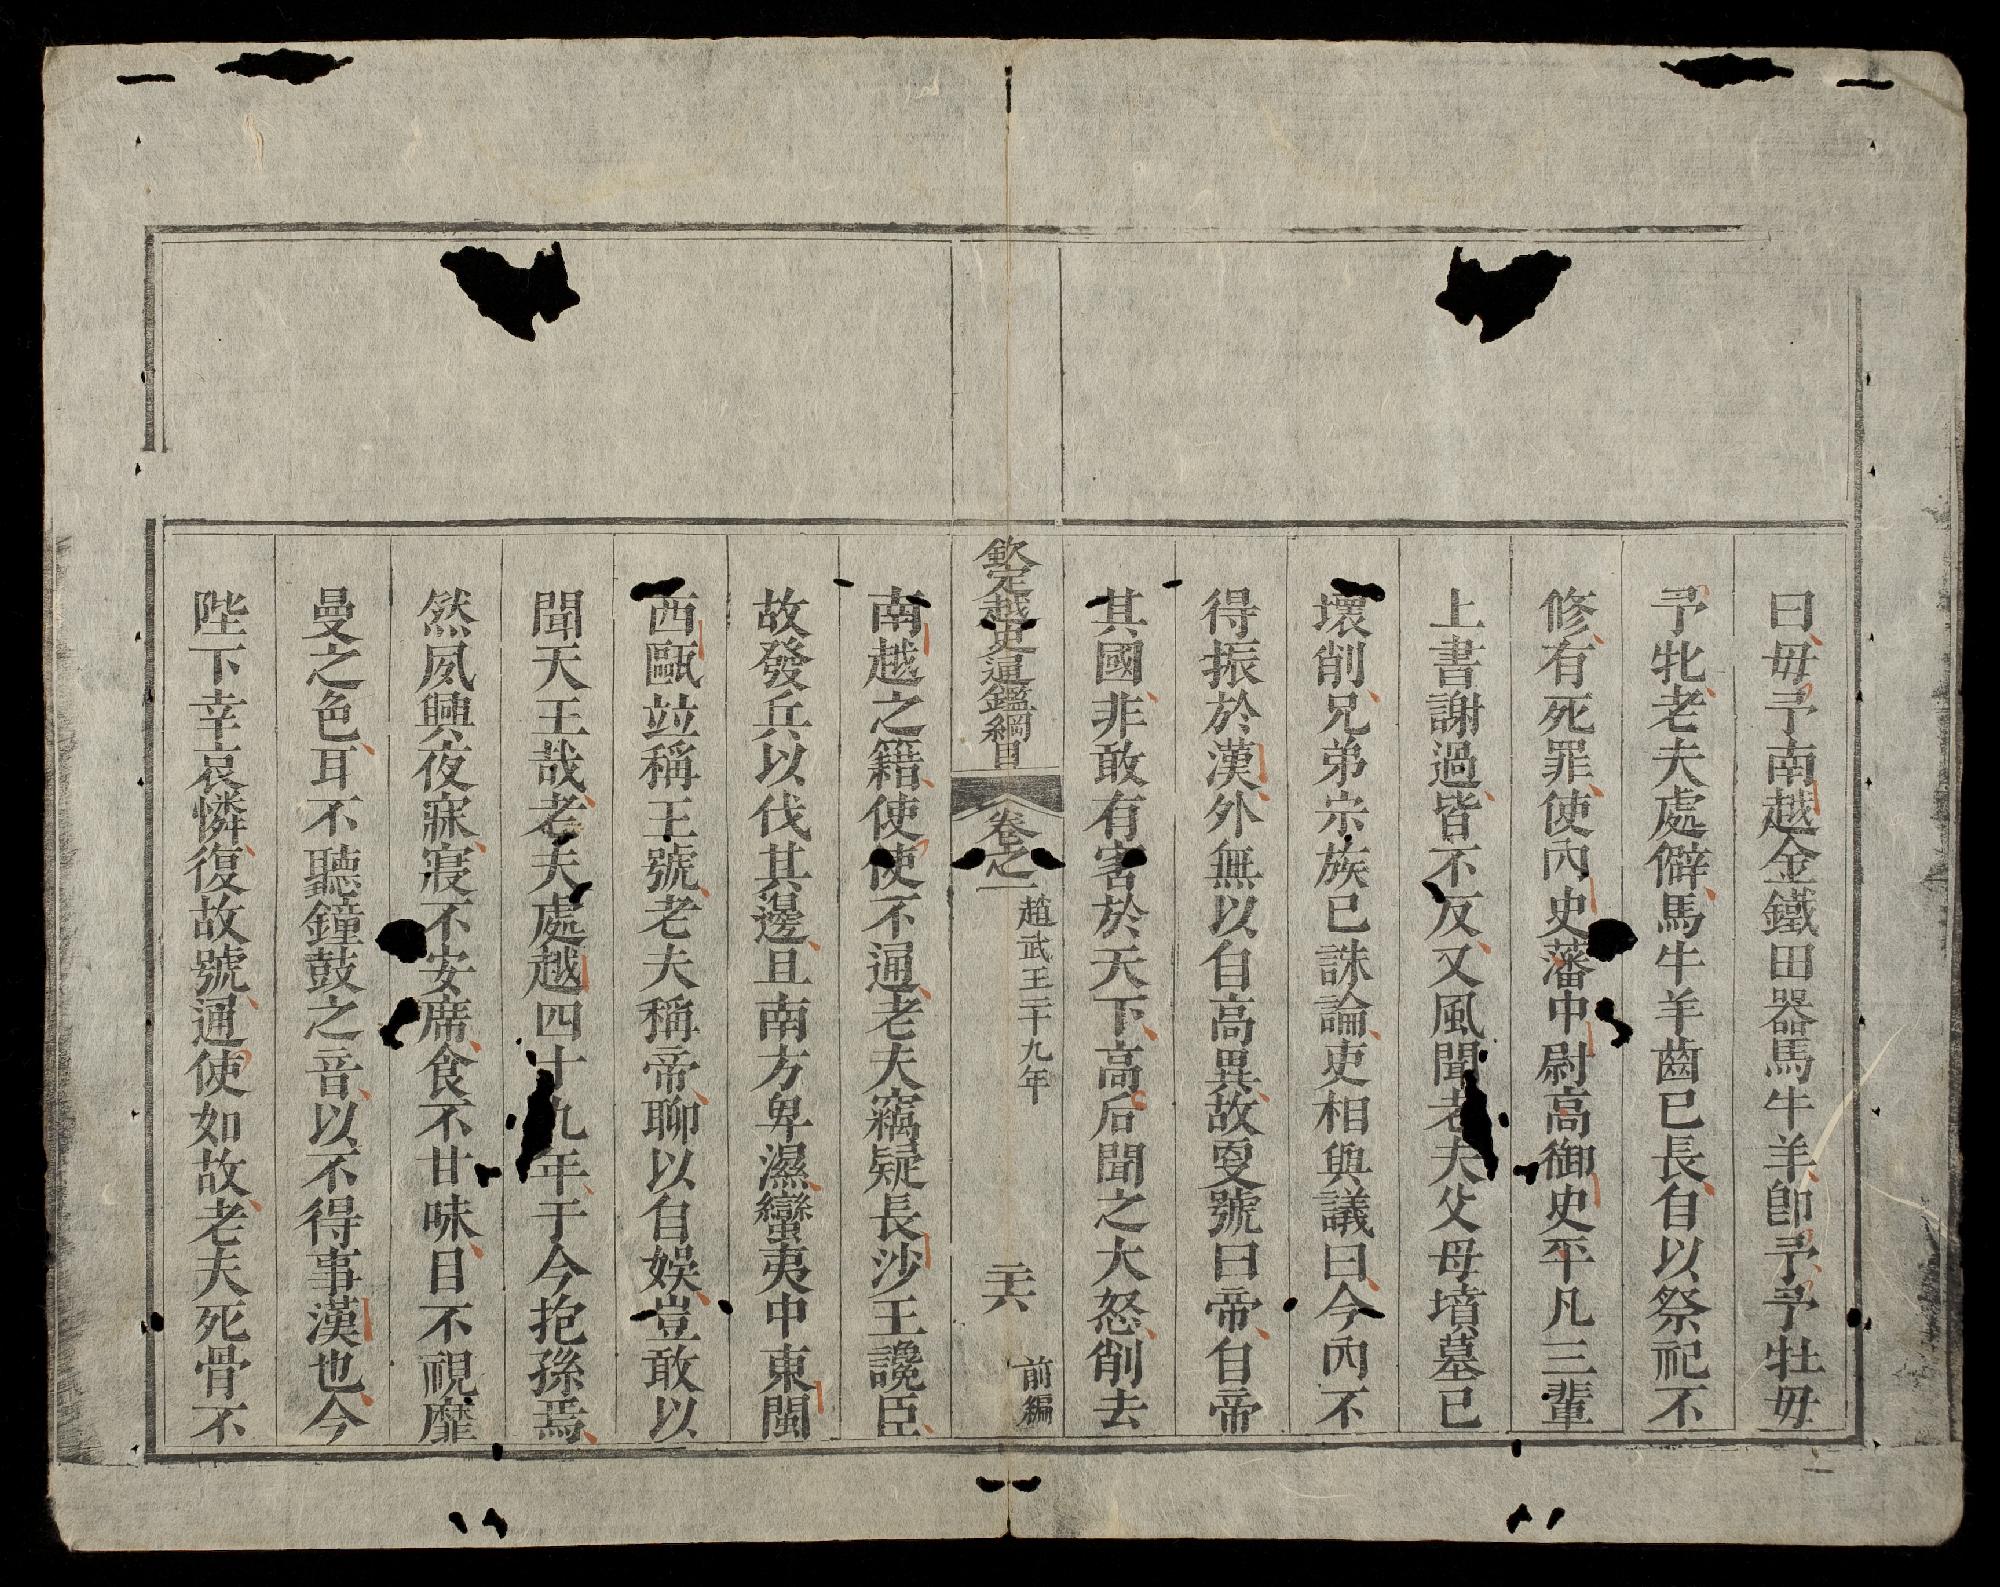 曰毋予南越金鐵田器馬牛羊卽予予牡毋
予牝老夫處僻馬牛羊齒已長自以祭祀不
修有死罪使內史藩中尉高御史平凡三輩
上書謝過皆不反又風聞老夫父母墳墓已
壞削兄弟宗族已誅論吏相與議曰今內不
得振於漢外無以自高異故更號曰帝自帝
其國非敢有害於天下高后聞之大怒削去
欽定越史通鑑綱目 卷之一 趙武王二十九年 二十六 前編
南越之籍使使不通老夫竊疑長沙王讒臣
故發兵以伐其邊且南方卑濕蠻夷中東閩
西甌竝稱王號老夫稱帝聊以自娛豈敢以
聞天王哉老夫處越四十九年于今抱孫焉
然夙興夜寐寢不安席食不甘味目不視靡
曼之色耳不聽鐘鼓之音以不得事漢也今
陛下幸哀憐復故號通使如故老夫死骨不